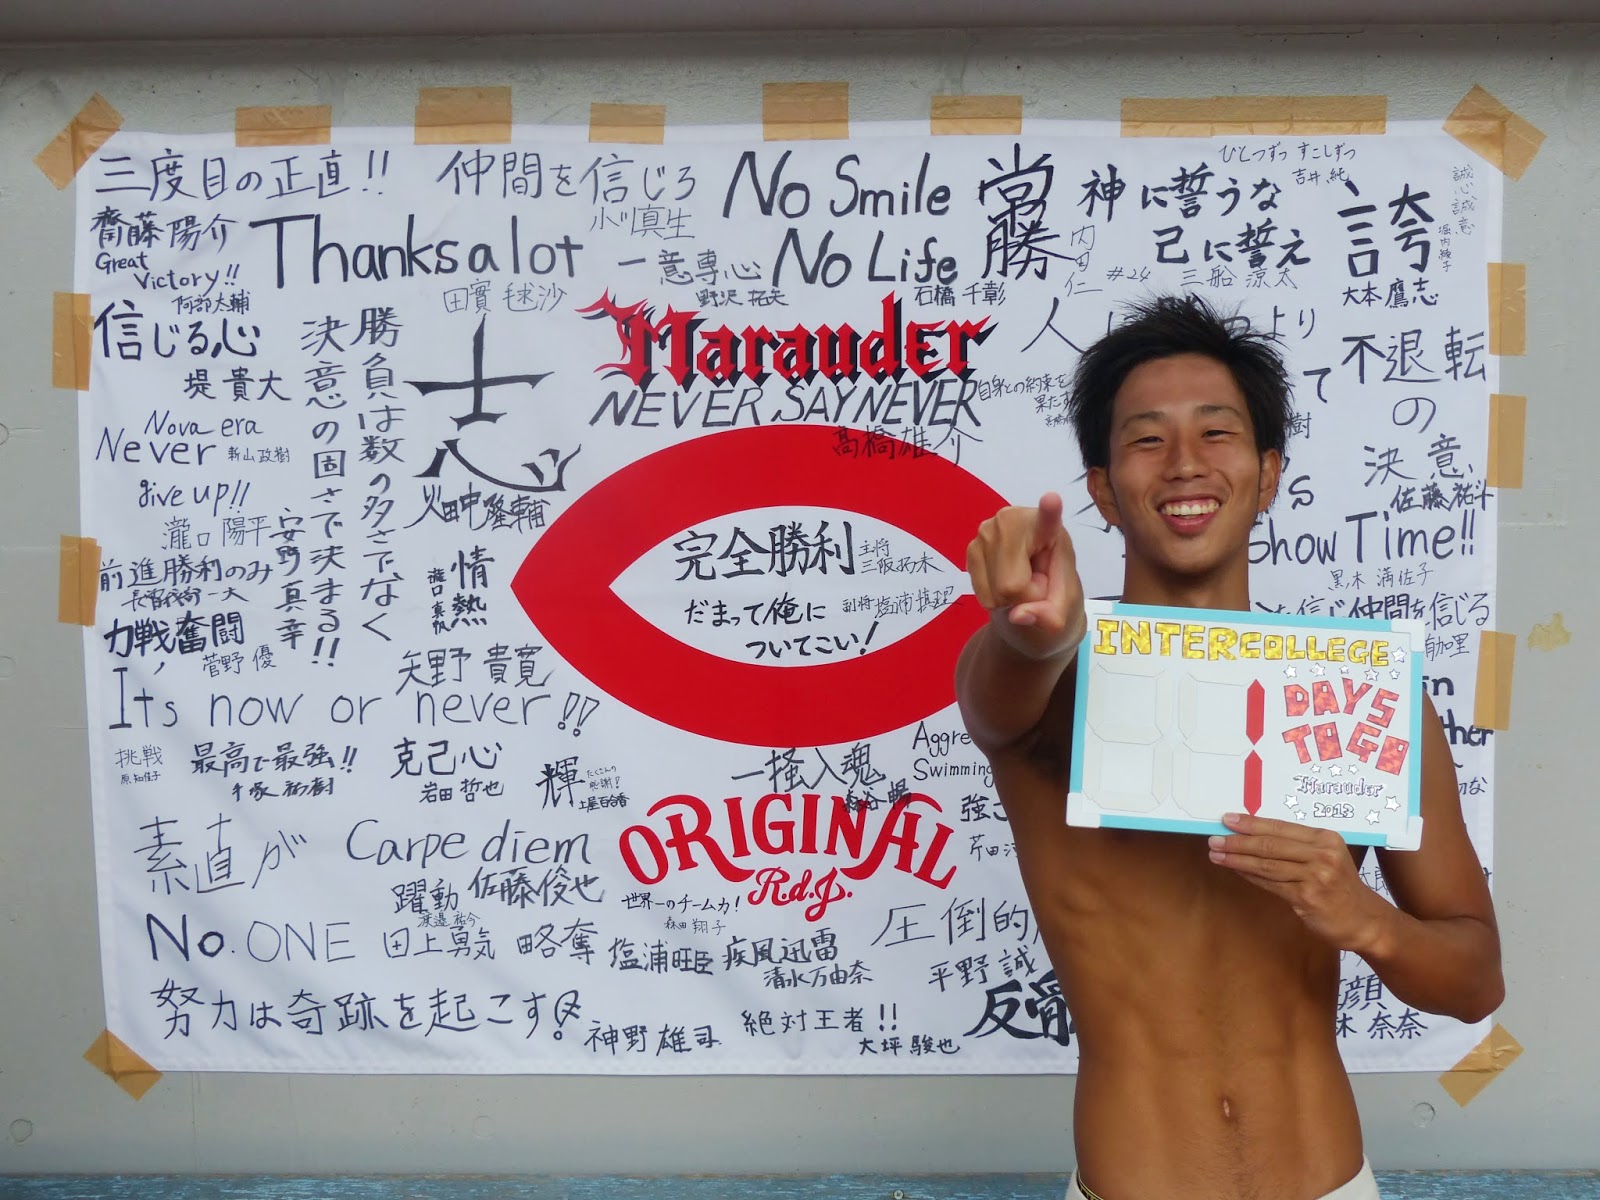 三度目の正直!!
齊藤陽介
仲間を信じろ
小川真生
No Smile
No Life
石橋 千彰
常勝
内田 仁 #24
神に誓うな
己に誓え
三船 涼太
ひとつずつ すこしずつ
吉井 純
誇
大本 鷹志
誠心誠意
Great
Victory!!
阿部太輔
Thanks a lot
田實 毬沙
一意専心
野沢 拓矢
信じる心
堤 貴大
勝負は数の多さでなく
決意の固さで決まる!!
安野真幸
志
火田中隆輔
Marauder
NEVER SAY NEVER
髙橋雄介
自身との約束を
果たす
人
より
不退転
の
決意
佐藤祐斗
Nova era
Never
新山政樹
give up!!
瀧口 陽平
前進勝利のみ
力戦奮闘
菅野 優
情熱
矢野 貴寛
完全勝利
主将
三阪拓未
だまって俺に
ついてこい!
副将
Show Time!!
黒木 満佐子
を信じ仲間を信じる
It's now or never!!
挑戦
原知佳子
最高で最強!!
手塚祐樹
克己心
岩田 哲也
輝
たくさんの
感謝!
土屋百合香
一掻入魂
森谷 暢
Aggre
Swimming
強
INTERCOLLEGE
1
DAYS
TO GO
Marauder
2013
ORIGINAL
R.d.J.
素直が
No.ONE
Carpe diem
佐藤俊也
躍動
渡邉祐今
田上勇気
略奪
塩浦旺臣
世界一のチーム力!
森田 翔子
疾風迅雷
清水万由奈
圧倒的
平野 誠
努力は奇跡を起こす!
神野 雄司
絶対王者!!
大坪 駿也
反骨
顔
木 奈奈